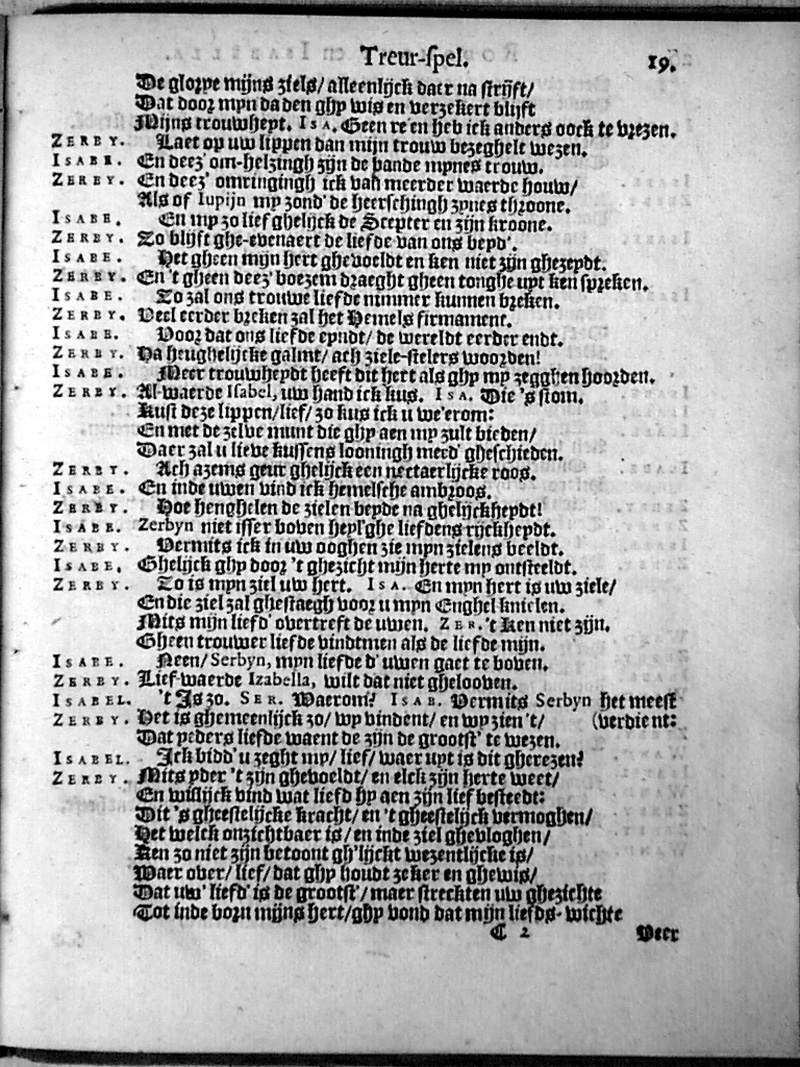 Treur-spel. 19.
De glorye mijns ziels/ alleenlijck daer na strijft/
Dat door myn daden ghy wis en verzekert blijft
Mijns trouwheyt. ISA. Geen re'en heb ick anders oock te vrezen.
ZERBY. Laet op uw lippen dan mijn trouw bezeghelt wezen.
ISABE. En deez' om-helzingh zijn de bande mynes trouw.
ZERBY. En deez' omringingh ick van meerder waerde houw/
Als of Iupijn my zond' de heerschingh zynes throone.
ISABE. En my zo lief ghelijck de Scepter en zijn kroone.
ZERBY. Zo blijft ghe-evenaert de liefde van ons beyd'.
ISABE. Het gheen mijn hert ghevoeldt en ken niet zijn ghezeydt.
ZERBY. En 't gheen deez' boezem draeght gheen tonghe uyt ken spreken.
ISABE. Zo zal ons trouwe liefde nimmer kunnen breken.
ZERBY. Veel eerder breken zal het Hemels firmament.
ISABE. Voor dat ons liefde eyndt/ de wereldt eerder endt.
ZERBY. Ha heughelijcke galmt/ ach ziele-stelers woorden!
ISABE. Meer trouwheydt heeft dit hert als ghy my zegghen hoorden.
ZERBY. Al-waerde Isabel, uw hand ick kus. ISA. Die 's stom.
Kust deze lippen/ lief/ zo kus ick u we'erom:
En met de zelve munt die ghy aen my zult bieden/
Daer zal u lieve kussens looningh med' gheschieden.
ZERBY. Ach azems geur ghelijck een nectaerlijcke roos.
ISABE. En inde uwen vind ick hemelsche ambroos.
ZERBY. Hoe henghelen de zielen beyde na ghelijckheydt!
ISABE. Zerbyn niet isser boven heyl'ghe liefdens rijckheydt.
ZERBY. Vermits ick in uw ooghen zie myn zielens beeldt.
ISABE. Ghelijck ghy door 't ghezicht mijn herte my ontsteeldt.
ZERBY. Zo is myn ziel uw hert. ISA. En myn hert is uw ziele/
En die ziel zal ghestaegh voor u myn Enghel knielen.
Mits mijn liefd' overtreft de uwen. ZER. 't Ken niet zijn.
Gheen trouwer liefde vindtmen als de liefde mijn.
ISABE. Neen/ Serbyn, myn liefde d' uwen gaet te boven.
ZERBY. Lief-waerde Izabella, wilt dat niet ghelooven.
ISABEL. 't Is zo. SER. Waerom? ISAB. Vermits Serbyn het meest
ZERBY. Het is ghemeenlijck zo/ wy vindent/ en wy zien 't/ (verdient:
Dat yeders liefde waent de zijn de grootst' te wezen.
ISABEL. Ick bidd' u zeght my/ lief/ waer uyt is dit gherezen?
ZERBY. Mits yder 't zijn ghevoeldt/ en elck zijn herte weet/
En wislijck vind wat liefd hy aen zijn lief besteedt:
Dit 's gheestelijcke kracht/ en 't gheestelijck vermoghen/
Het welck onzichtbaer is/ en inde ziel ghevloghen/
Ken zo niet zijn betoont gh'lijckt wezentlijcke is/
Waer over/ lief/ dat ghy houdt zeker en ghewis/
Dat uw' liefd' is de grootst'/ maer streckten uw ghezichte
Tot inde born mijns hert/ ghy vond dat mijn liefds-wichte
C 2 Veer